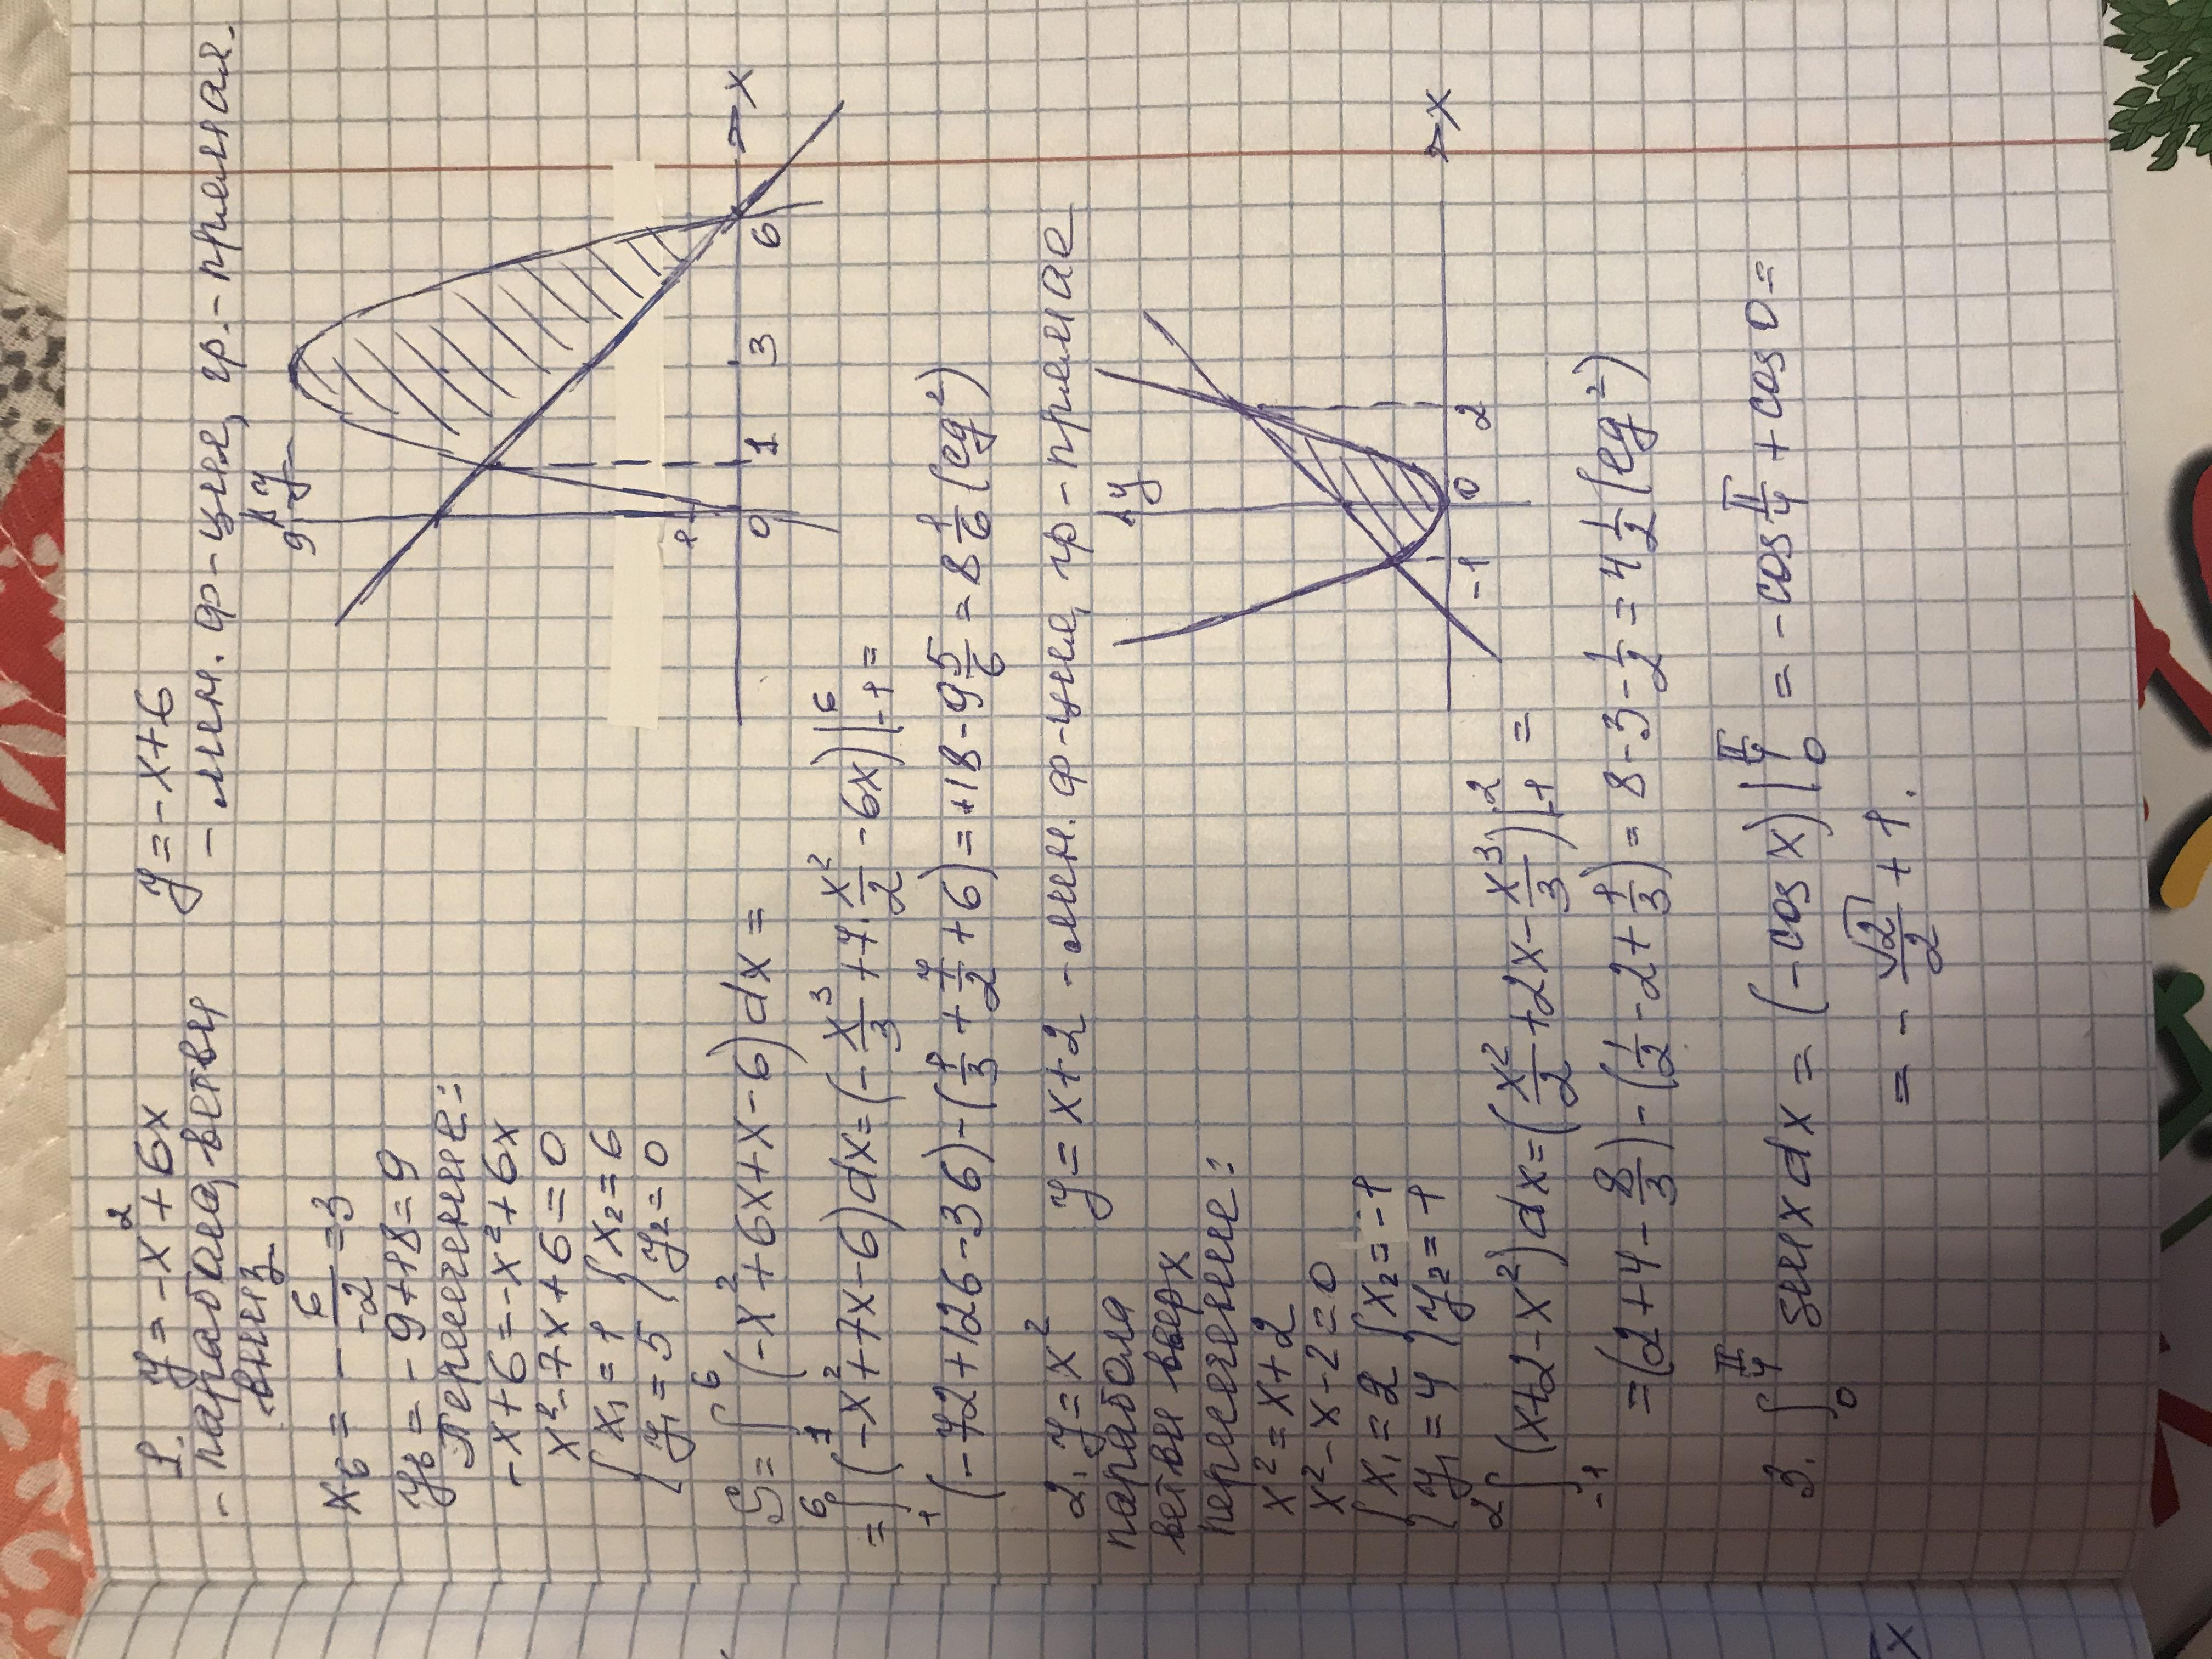 1. y = -x² + 6x    y = -x+6
- парабола, ветви    - лин. ф-ция, гр. - прямая.
вниз
x_в = - 6/-2 = 3
y_в = -9+18=9
Пересечение:
-x+6=-x²+6x
x²-7x+6=0
{x₁=1    {x₂=6
{y₁=5    {y₂=0
9    y
1
0    1    3    6    x
S = ∫₁⁶ (-x²+6x+x-6)dx =
= ∫₁⁶ (-x²+7x-6)dx=(-x³/3+7·x²/2-6x)|₋₁⁶ =
(-72+126-36)-(1/3+7/2+6)=+18-9 5/6=8 1/6 (ед²)
2. y=x²    y=x+2 - лин. ф-ция, гр - прямае
парабола
ветви вверх
пересечение:
x²=x+2
x²-x-2=0
{x₁=2    {x₂=-1
{y₁=4    {y₂=1
y
-1    0    2    x
∫₋₁² (x+2-x²)dx=(x²/2+2x-x³/3)|₋₁² =
=(2+4-8/3)-(1/2-2+1/3)=8-3-1/2=4 1/2 (ед²)
3. ∫₀^(π/4) sinxdx = (-cosx)|₀^(π/4) = -cos π/4 + cos0=
= - √2/2 + 1.
x